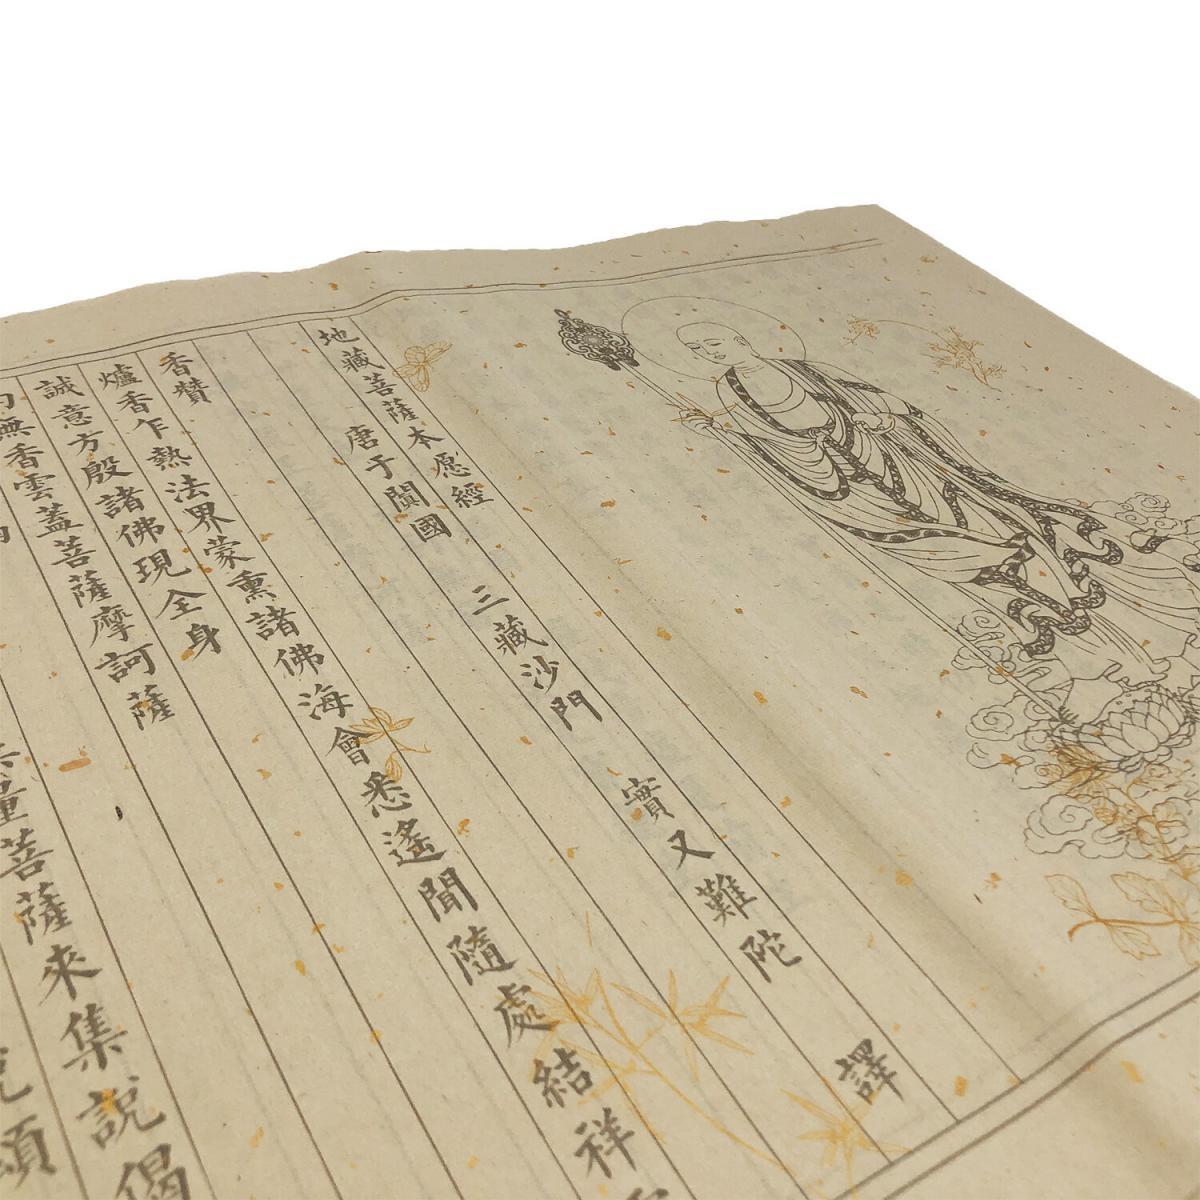 地藏菩薩本愿經
唐于闐國 三藏沙門 實又難陀 譯
香贊
爐香乍熱法界蒙熏諸佛海會悉遙聞隨處結祥
誠意方殷諸佛現全身
無香雲蓋菩薩摩訶薩
量菩薩來集說偈
頌